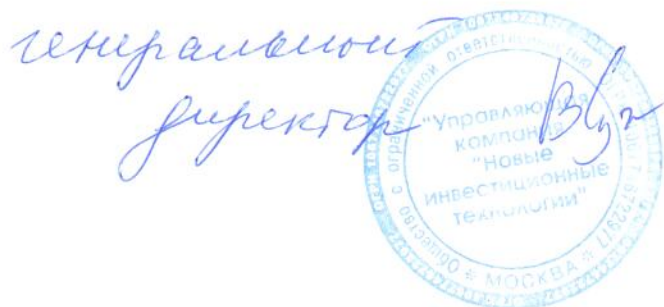 генеральный
директор
Общество с ограниченной ответственностью
"Управляющая
компания
"Новые
инвестиционные
технологии"
* МОСКВА *